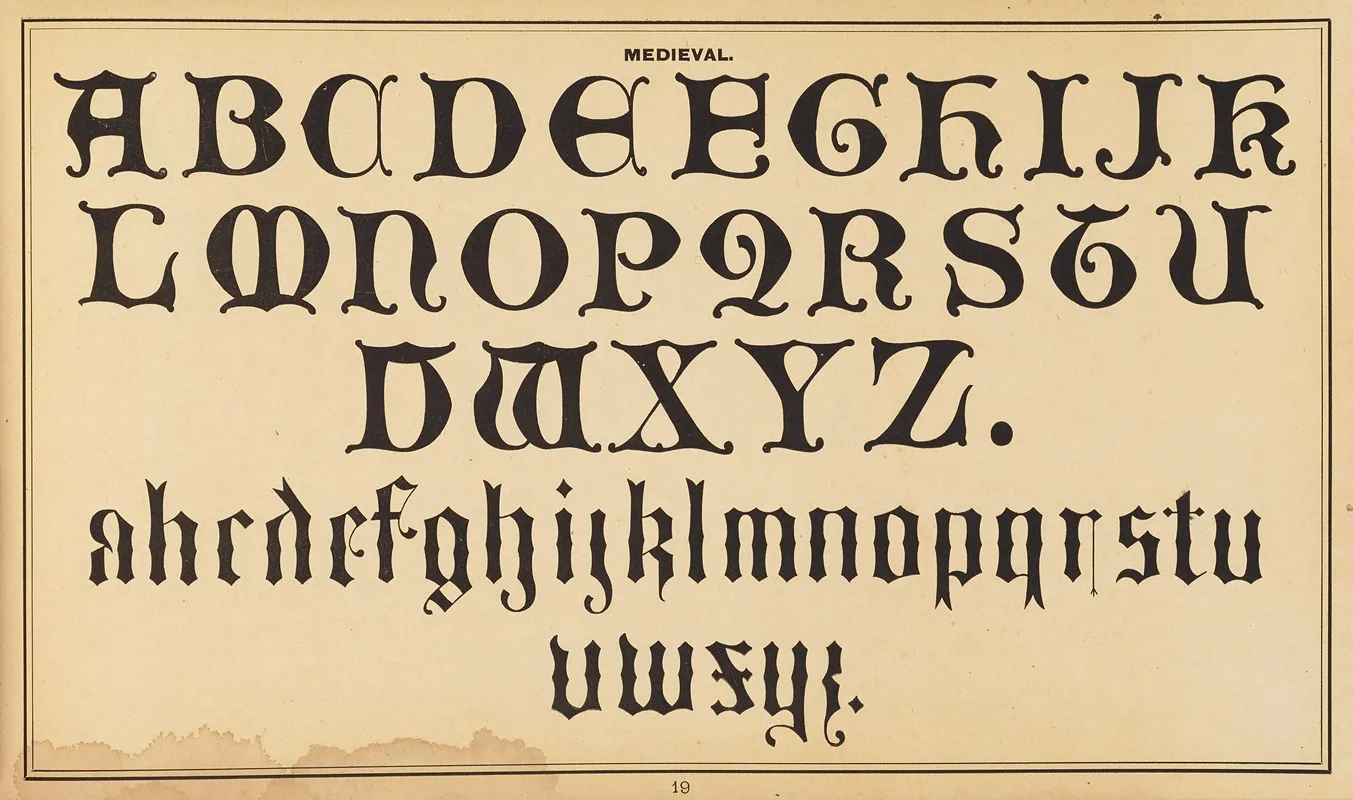 MEDIEVAL.
ABCDEEGHIJK
LMNOPQRSTU
VWXYZ.
abcdefghijklmnopqrstu
vwxyz.
19